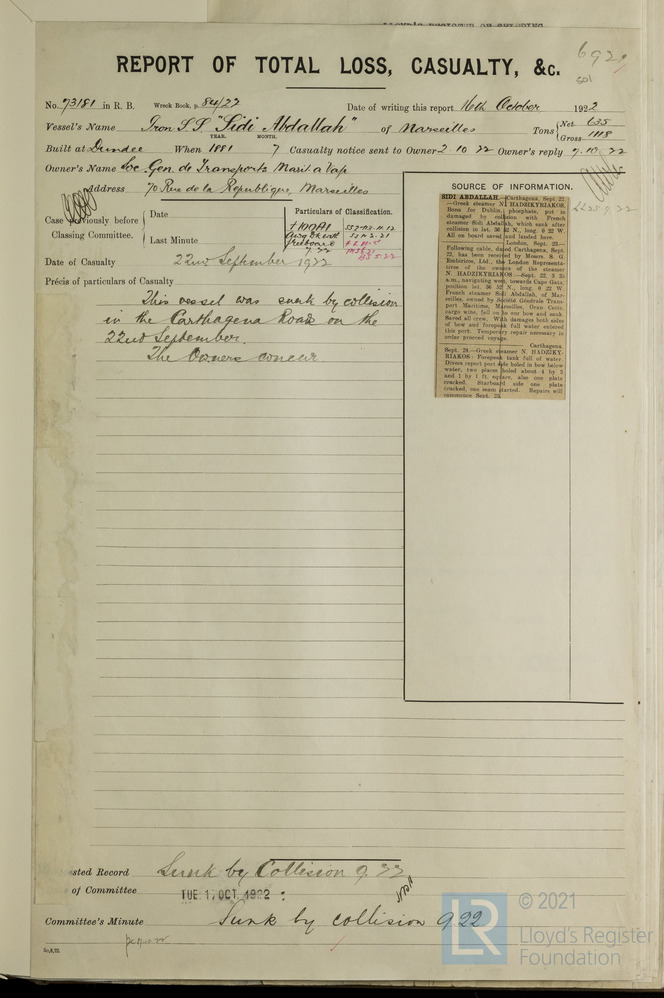 REPORT OF TOTAL LOSS, CASUALTY, &c.
No. 73181 in R. B. Wreck Book, p. 84/22 Date of writing this report 16th October 1922
Vessel's Name Iron S.S. "Sidi Abdallah" of Marseilles Tons { Net 635
Gross 1118
YEAR. MONTH.
Built at Dundee When 1881 7 Casualty notice sent to Owner 2.10.22 Owner's reply 7.10.22
Owner's Name Soc. Gen. de Transports Marit. a Vap.
Address 70 Rue de la Republique, Marseilles
Case previously before
Classing Committee.
Date
Last Minute
Particulars of Classification.
+100A1
freeboard
7.22
Date of Casualty 22nd September 1922
Précis of particulars of Casualty
This vessel was sunk by collision
in the Carthagena Roads on the
22nd September.
The Owners concur
SOURCE OF INFORMATION.
SIDI ABDALLAH.—Carthagena, Sept. 22.
—Greek steamer N. HADZIKYRIAKOS,
Bona for Dublin, phosphate, put in
damaged by collision with French
steamer Sidi Abdallah, which sank after
collision in lat. 36 52 N., long. 0 22 W.
All on board saved and landed here.
London, Sept. 23.—
Following cable, dated Carthagena, Sept.
22, has been received by Messrs. S. G.
Embiricos, Ltd., the London Representa-
tives of the owners of the steamer
N. HADZIKYRIAKOS:—Sept. 22, 3 25
a.m., navigating west, towards Cape Gata,
position lat. 36 52 N., long. 0 22 W.
French steamer Sidi Abdallah, of Mar-
seilles, owned by Société Générale Trans-
port Maritime, Marseilles, Oran Cette,
cargo wine, fell on to our bow and sank.
Saved all crew. With damages both sides
of bow and forepeak full water entered
this port. Temporary repair necessary in
order proceed voyage.
Carthagena,
Sept. 24.—Greek steamer N. HADZIKY-
RIAKOS: Forepeak tank full of water.
Divers report port side holed in bow below
water, two places holed about 4 by 3
and 1 by 1 ft. square, also one plate
cracked. Starboard side one plate
cracked, one seam started. Repairs will
commence Sept. 25.
sted Record Sunk by Collision 9.22
of Committee TUE 17 OCT 1922
Committee's Minute Sunk by collision 9.22
© 2021
LR Lloyd's Register
Foundation